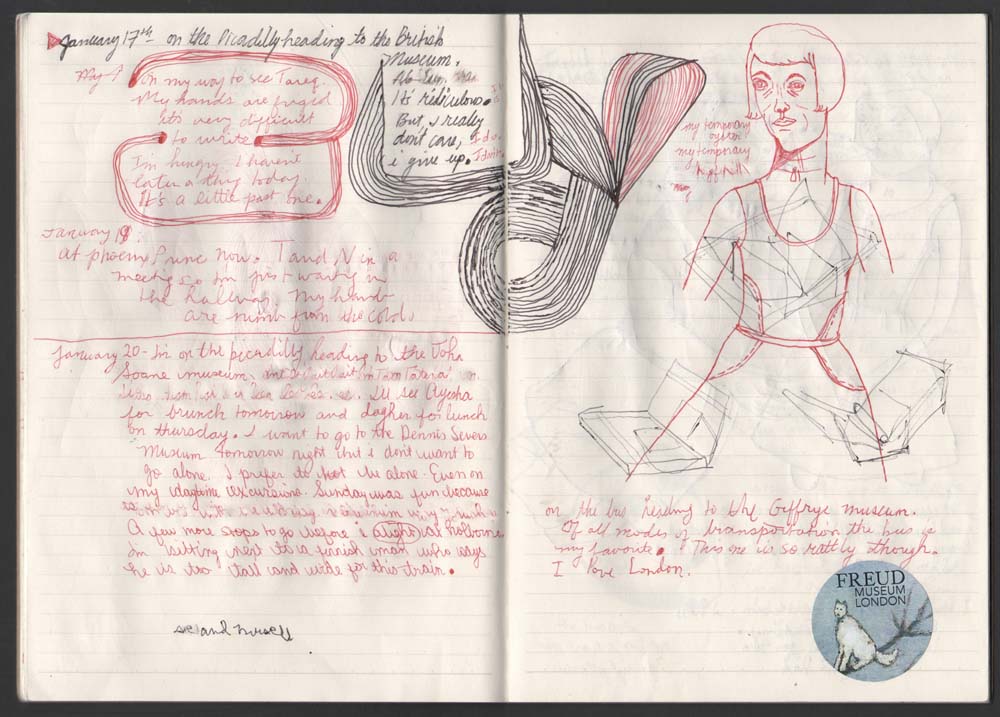 January 17th on the Picadilly heading to the British
Museum.
It's ridiculous.
But, I really
don't care,
i give up.
I do.
on my way to see Tareq.
My hands are frigid
its very difficult
to write
I'm hungry I haven't
eaten a thing today
It's a little past one.
January 19:
at phoenix now. T and N in a
meeting so I'm just waiting in
the hallway. My hands
are numb from the cold.
January 20 - I'm on the picadilly heading to the John
Soane museum,
I'll see Ayesha
for brunch tomorrow and dagher for lunch
on thursday. I want to go to the Dennis Severs
Museum tomorrow night but i dont want to
go alone. I prefer to not be alone. Even on
my daytime excursions. Sunday was fun because
A few more stops to go before i alight at holborn
Im sitting next to a finnish man who says
he is too tall and wide for this train.
see and herself
my temporary
oyster
my temporary
on the bus heading to the Geffrye museum.
Of all modes of transportation the bus is
my favorite. This one is so rattly though.
I love London.
FREUD
MUSEUM
LONDON